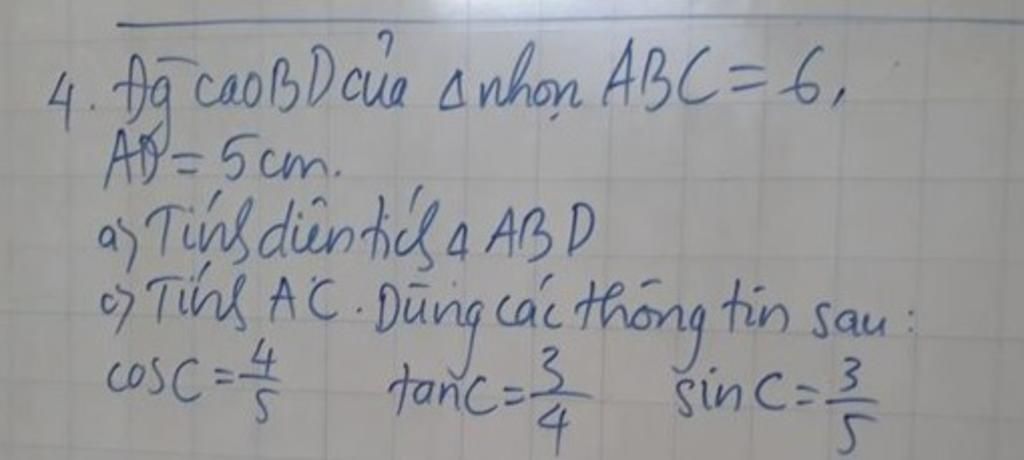 4. Đg̅ cao BD của Δ nhọn ABC = 6,
AD = 5 cm.
a) Tính diên tích Δ ABD
c) Tính AC. Dùng các thông tin sau:
cos C = 4/5 tan C = 3/4 sin C = 3/5